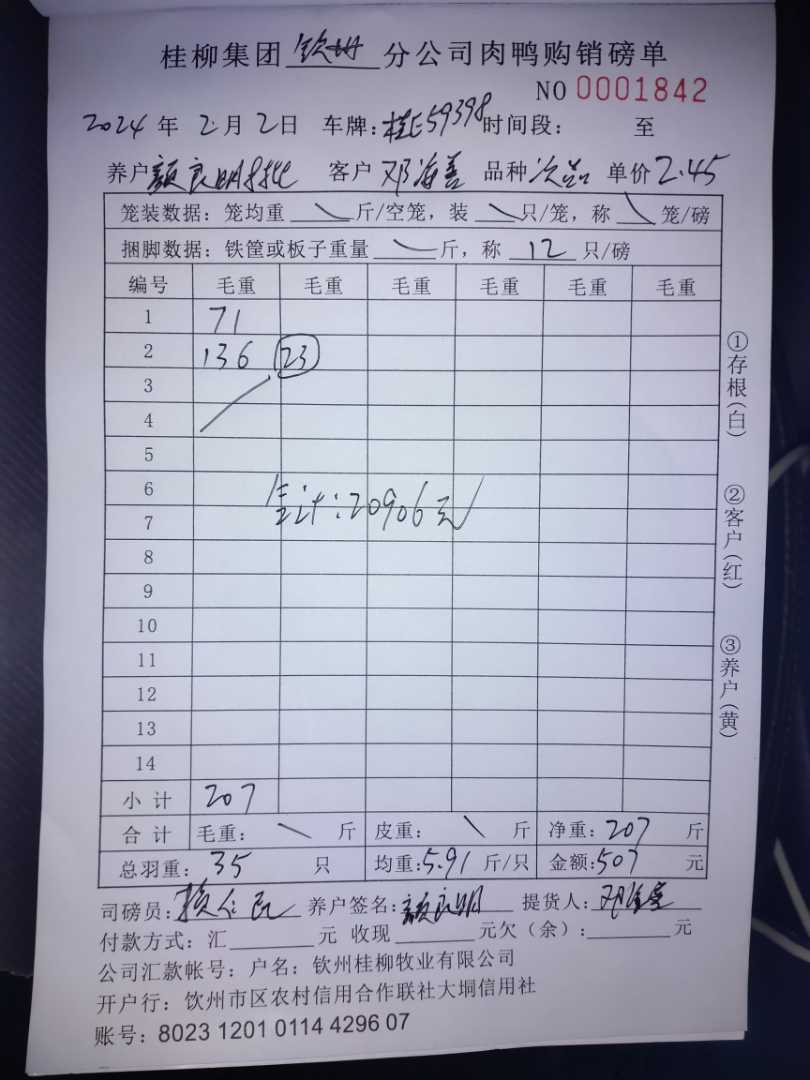 桂柳集团 钦州 分公司肉鸭购销磅单
NO 0001842
2024 年 2 月 2 日 车牌: 桂E59398 时间段: 至
养户 颜良明 批 客户 邓海善 品种 次品 单价 2.45
笼装数据: 笼均重 斤/空笼, 装 只/笼, 称 笼/磅
捆脚数据: 铁筐或板子重量 斤, 称 12 只/磅
编号 毛重 毛重 毛重 毛重 毛重 毛重
1 71
2 136 23
3
4
5
6
总计:20906元
7
8
9
10
11
12
13
14
小 计 207
合 计 毛重: 斤 皮重: 斤 净重: 207 斤
总羽重: 35 只 均重: 5.91 斤/只 金额: 507 元
司磅员: 养户签名: 颜良明 提货人: 邓海善
付款方式: 汇 元 收现 元欠(余): 元
公司汇款帐号: 户名: 钦州桂柳牧业有限公司
开户行: 钦州市区农村信用合作联社大垌信用社
账号: 8023 1201 0114 4296 07
①存根(白)
②客户(红)
③养户(黄)